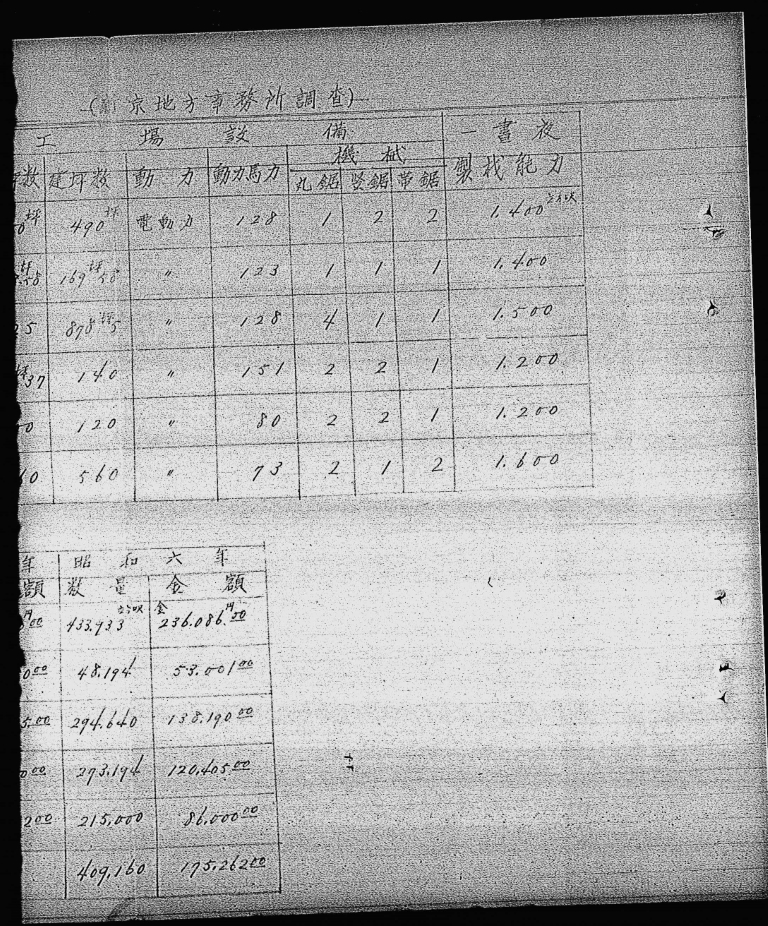 京地方事務所調査)
工場設備 一晝夜
機械
数 建坪数 動力 動力馬力 丸鋸 竪鋸 帯鋸 製材能力
坪 490坪 電動力 128 1 2 2 1.400
坪58 169坪58 〃 123 1 1 1 1.400
5 878坪5 〃 128 4 1 1 1.500
37 140 〃 151 2 2 1 1.200
0 120 〃 80 2 2 1 1.200
60 560 〃 73 2 1 2 1.600
年 昭和六年
額 数量 金額
00 433.933 金236.086円00
000 48.194 53.00100
5.00 294.640 138.19000
000 293.194 120.405.00
200 215.000 86.00000
409.160 175.26200